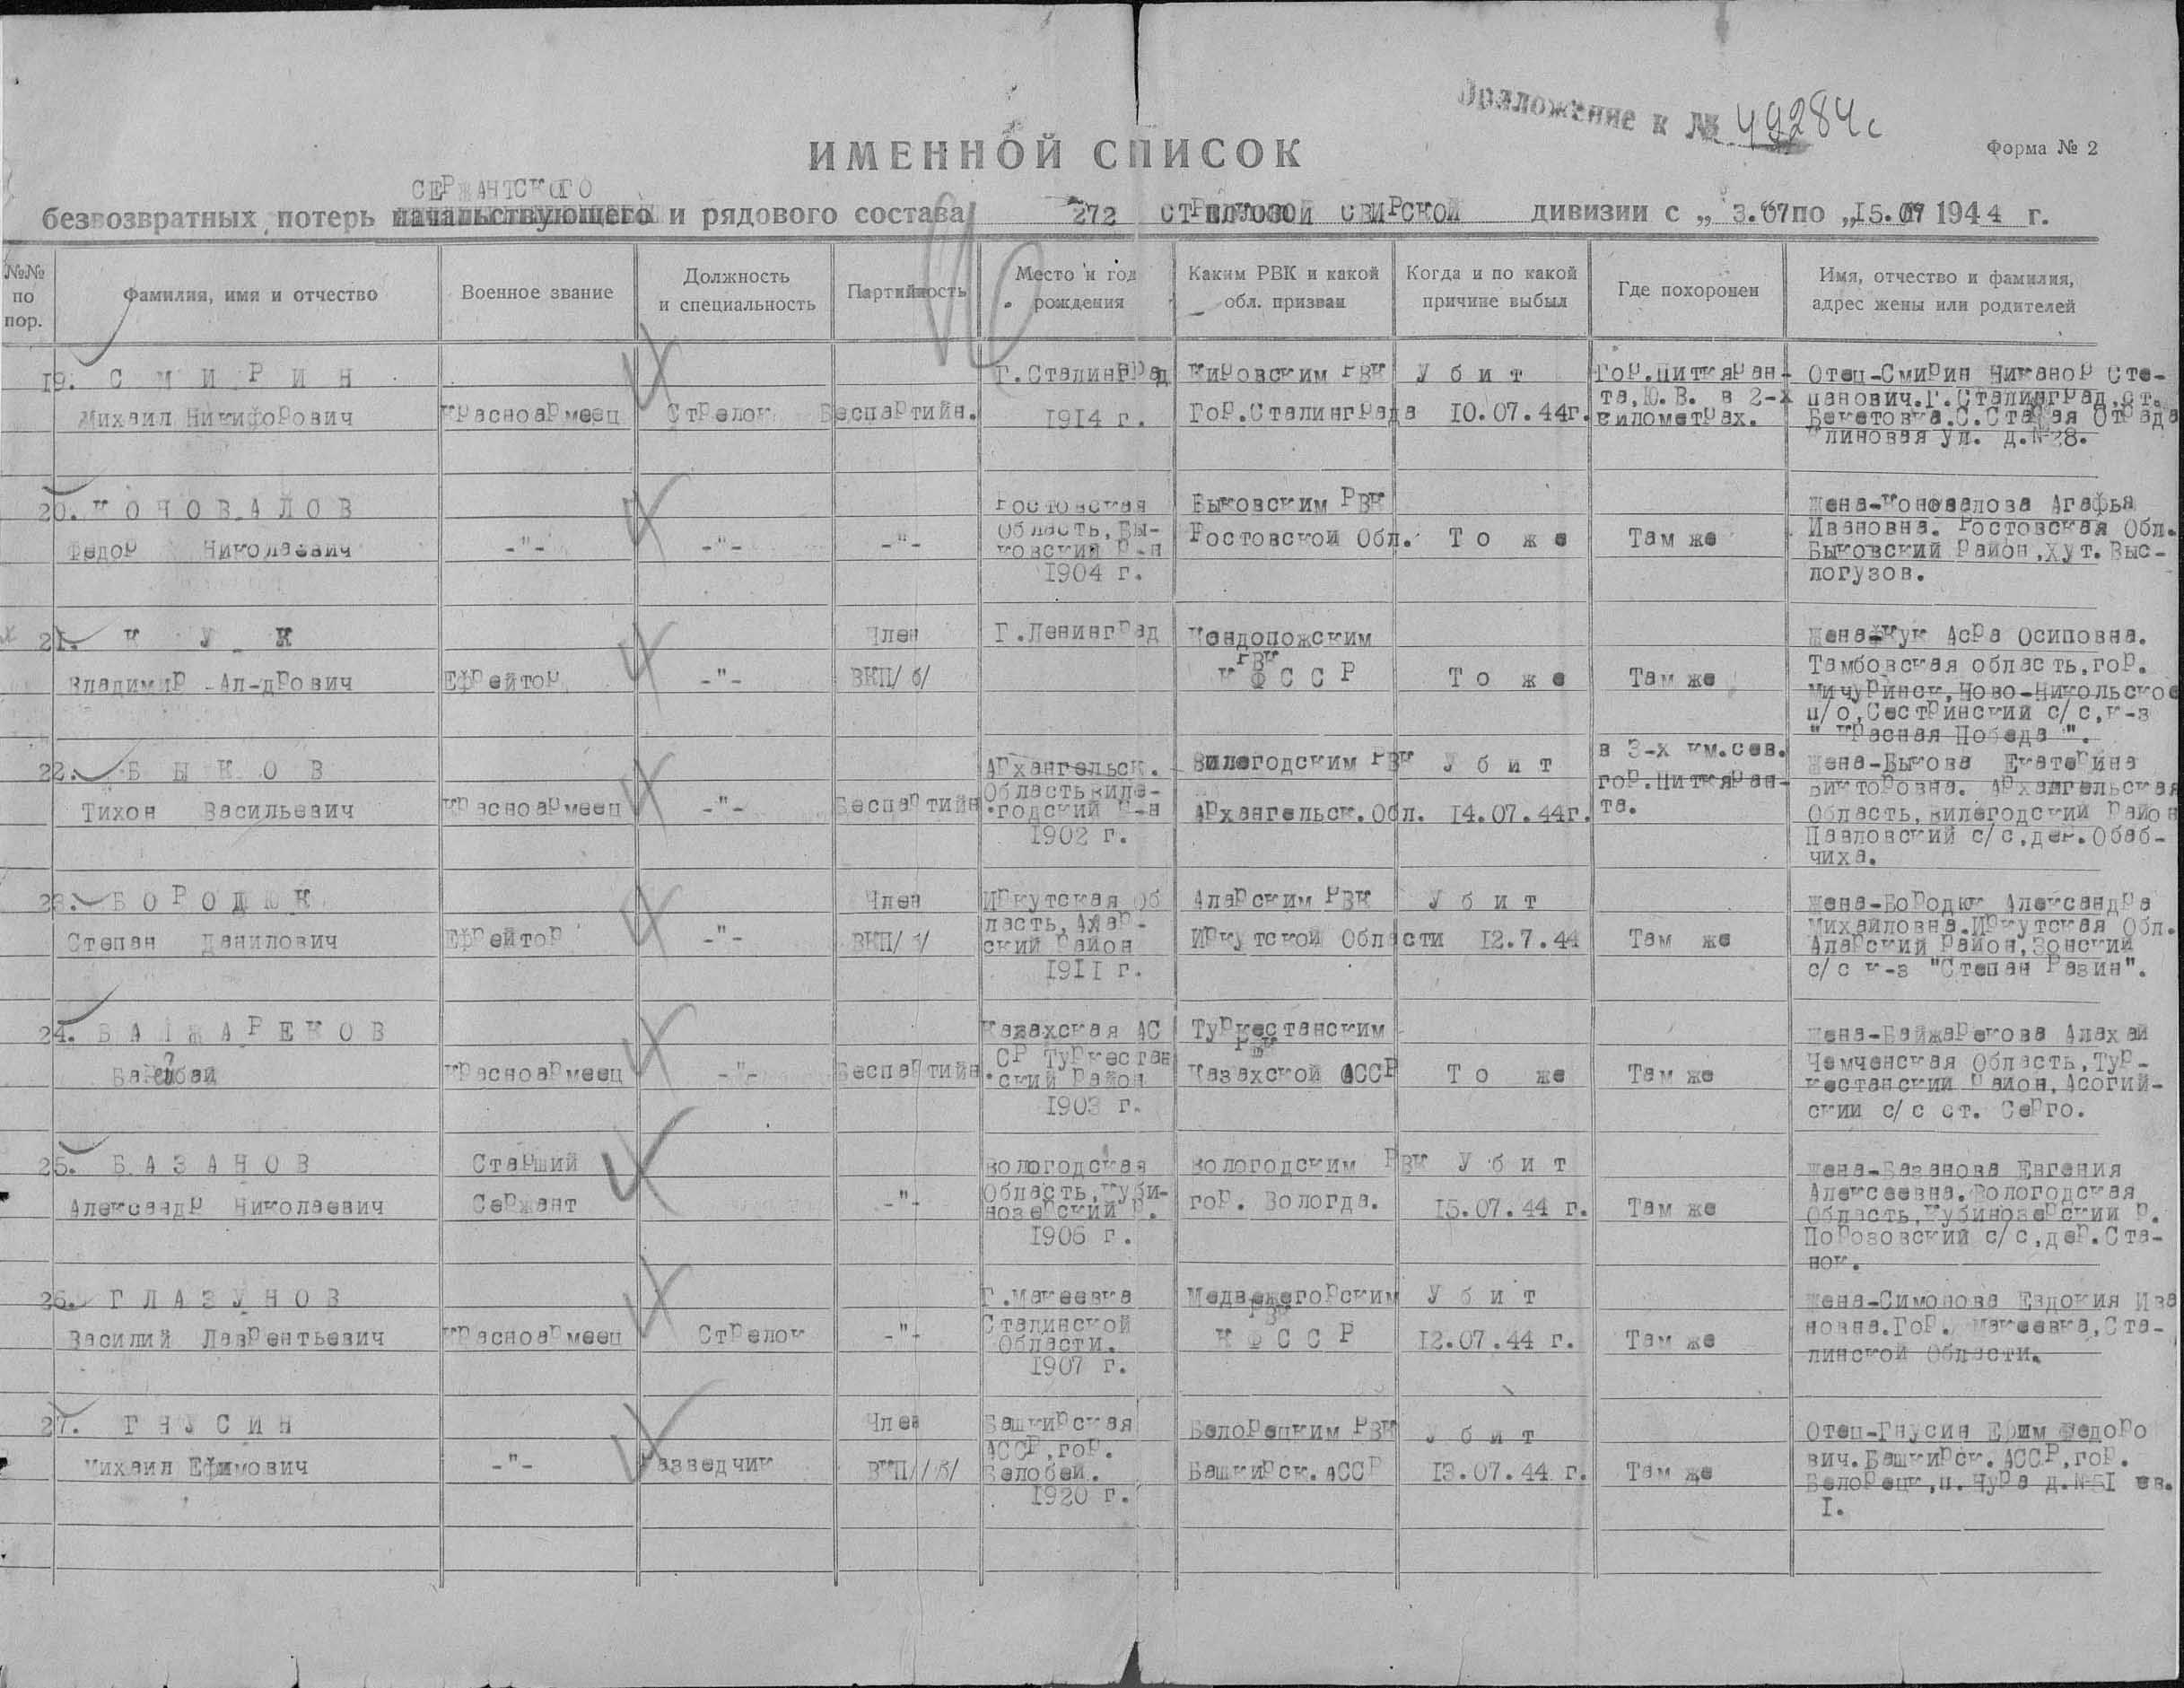 Приложение к № 49284с
ИМЕННОЙ СПИСОК
Форма № 2
СЕРЖАНТСКОГО
безвозвратных потерь начальствующего и рядового состава 272 СТРЕЛКОВОЙ СВИРСКОЙ дивизии с „ 3.07 по „15.07 1944 г.
№№ по пор.
Фамилия, имя и отчество
Военное звание
Должность и специальность
Партийность
Место и год рождения
Каким РВК и какой обл. призван
Когда и по какой причине выбыл
Где похоронен
Имя, отчество и фамилия, адрес жены или родителей
19. С М И Р И Н
Михаил Никифорович
Красноармеец
Стрелок
Беспартийн.
Г.Сталинград
1914 г.
Кировским РВК
Гор.Сталинграда
У б и т
10.07.44г.
Гор.Питкяран-
та,Ю.В. в 2-х
километрах.
Отец-Смирин Никанор Сте-
панович.Г.Сталинград,ст.
Бекетовка.С.Старая Отрада
линовая ул. д.№28.
20. К О Н О В А Л О В
Федор Николаевич
-"-
-"-
-"-
Ростовская
Область, Бы-
ковский Р-н
1904 г.
Быковским РВК
Ростовской Обл.
Т о ж е
Там же
Жена-Коновалова Агафья
Ивановна. Ростовская Обл.
Быковский Район,Хут. Выс-
логузов.
21. К У К
Владимир Ал-дрович
Ефрейтор
-"-
Член
ВКП/б/
Г.Ленинград
Кондопожским
РВК
К Ф С С Р
Т о ж е
Там же
Жена-Кук Асра Осиповна.
Тамбовская область,гор.
Мичуринск,Ново-Никольское
п/о,Сестринский с/с,к-з
" Красная Победа ".
22. Б Ы К О В
Тихон Васильевич
Красноармеец
-"-
Беспартийн
Архангельск.
Область Виле-
годский Р-н
1902 г.
Вилегодским РВК
Архангельск.Обл.
У б и т
14.07.44г.
в 3-х км.сев.
гор.Питкяран-
та.
Жена-Быкова Екатерина
Викторовна. Архангельская
Область,Вилегодский Район
Павловский с/с,дер.Обаб-
чиха.
23. Б О Р О Д Ю К
Степан Данилович
Ефрейтор
-"-
Член
ВКП/б/
Иркутская Об
ласть, Алар-
ский Район
1911 г.
Аларским РВК
Иркутской Области
У б и т
12.7.44
Там же
Жена-Бородюк Александра
Михайловна.Иркутская Обл.
Аларский Район,Зонский
с/с к-з "Степан Разин".
24. Б А Й Ж А Р Е К О В
Красноармеец
-"-
Беспартийн
Казахская АС
СР Туркестан
ский Район
1903 г.
Туркестанским
РВК
Казахской АССР
Т о же
Там же
Жена-Байжарекова Алахай
Чемченская Область,Тур-
кестанский Район,Асогий-
ский с/с ст. Серго.
25. Б А З А Н О В
Александр Николаевич
Старший
Сержант
-"-
Вологодская
Область,Куби-
нозерский Р.
1906 г.
Вологодским РВК
гор. Вологда.
У б и т
15.07.44 г.
Там же
Жена-Базанова Евгения
Алексеевна.Вологодская
Область,Кубинозерский Р.
Порозовский с/с,дер.Ста-
нок.
26. Г Л А З У Н О В
Василий Лаврентьевич
Красноармеец
Стрелок
-"-
Г.Макеевка
Сталинской
Области.
1907 г.
Медвежегорским
РВК
К Ф С С Р
У б и т
12.07.44 г.
Там же
Жена-Симонова Евдокия Ива
новна.Гор. Макеевка,Ста-
линской Области.
27. Г Н У С И Н
Михаил Ефимович
-"-
Разведчик
Член
ВКП/б/
Башкирская
АССР,гор.
Белобей.
1920 г.
Белорецким РВК
Башкирск.АССР
У б и т
13.07.44 г.
Там же
Отец-Гнусин Ефим Федоро
вич.Башкирск.АССР,гор.
Белорецк,п.Чура д.№51 кв.
1.